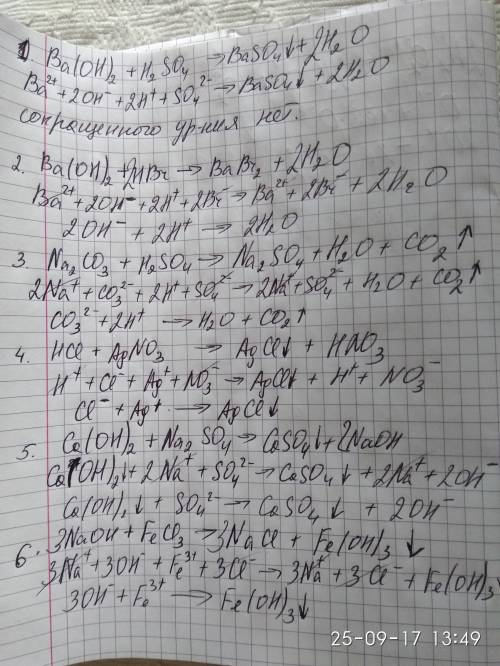 1. Ba(OH)₂ + H₂SO₄ → BaSO₄↓ + 2H₂O
Ba²⁺ + 2OH⁻ + 2H⁺ + SO₄²⁻ → BaSO₄↓ + 2H₂O
сокращенного ур-ния нет.
2. Ba(OH)₂ + 2HBr → BaBr₂ + 2H₂O
Ba²⁺ + 2OH⁻ + 2H⁺ + 2Br⁻ → Ba²⁺ + 2Br⁻ + 2H₂O
2OH⁻ + 2H⁺ → 2H₂O
3. Na₂CO₃ + H₂SO₄ → Na₂SO₄ + H₂O + CO₂↑
2Na⁺ + CO₃²⁻ + 2H⁺ + SO₄²⁻ → 2Na⁺ + SO₄²⁻ + H₂O + CO₂↑
CO₃²⁻ + 2H⁺ → H₂O + CO₂↑
4. HCl + AgNO₃ → AgCl↓ + HNO₃
H⁺ + Cl⁻ + Ag⁺ + NO₃⁻ → AgCl↓ + H⁺ + NO₃⁻
Cl⁻ + Ag⁺ → AgCl↓
5. Ca(OH)₂ + Na₂SO₄ → CaSO₄↓ + 2NaOH
Ca(OH)₂↓ + 2Na⁺ + SO₄²⁻ → CaSO₄↓ + 2Na⁺ + 2OH⁻
Ca(OH)₂↓ + SO₄²⁻ → CaSO₄↓ + 2OH⁻
6. 3NaOH + FeCl₃ → 3NaCl + Fe(OH)₃↓
3Na⁺ + 3OH⁻ + Fe³⁺ + 3Cl⁻ → 3Na⁺ + 3Cl⁻ + Fe(OH)₃↓
3OH⁻ + Fe³⁺ → Fe(OH)₃↓
25-09-17 13:49